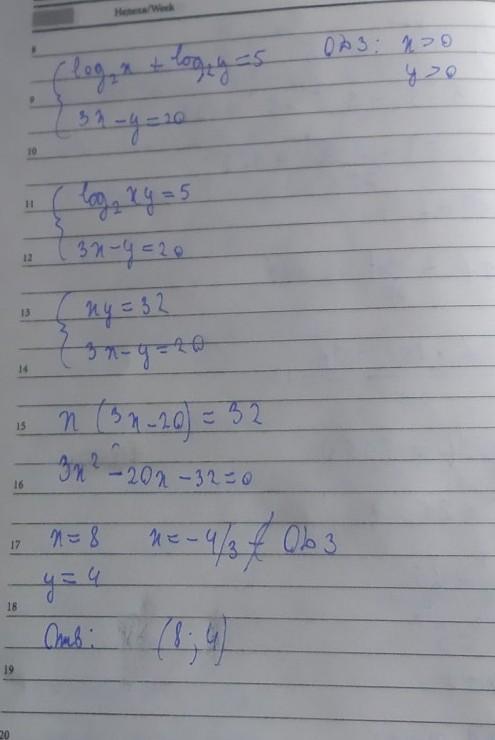 Неделя/Week
8
log₂x + log₂y = 5 ОДЗ: x > 0
9
y > 0
3x - y = 20
10
11
log₂ xy = 5
12
3x - y = 20
13
xy = 32
14
3x - y = 20
15
x (3x - 20) = 32
16
3x² - 20x - 32 = 0
17
x = 8 x = -4/3 ∉ ОДЗ
y = 4
18
Отв: (8; 4)
19
20